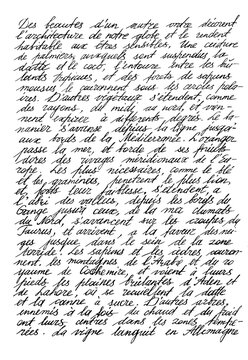 Des beautés d'un autre ordre décorent
l'architecture de notre globe, et le rendent
habitable aux êtres sensibles. Une ceinture
de palmiers, auxquels sont suspendus la
datte et le coco, l'entoure entre les brû-
lants tropiques, et des forêts de sapins
mousseux le couronnent sous les cercles polai-
res. D'autres végétaux s'étendent, comme
des rayons, du midi au nord, et vien-
nent expirer à différents degrés. Le ba-
nanier s'avance depuis la ligne jusqu'
aux bords de la Méditerranée. L'oranger
passe la mer, et borde de ses fruits
dorés des rivages méridionaux de l'Eu-
rope. Les plus nécessaires, comme le blé
et les graminées, pénètrent le plus loin,
et, forts de leur faiblesse, s'étendent, à
l'abri des vallées, depuis les bords du
Gange jusqu'à ceux de la mer
du Nord, s'avancent sur les croupes du
Taurus, et arrivent, à la faveur des nei-
ges, jusque dans le sein de la zone
torride. Les sapins et les cèdres couron-
nent les montagnes de l'Arabie et du ro-
yaume de Cachemire, et voient à leurs
pieds les plaines brûlantes d'Aden et
de Lahore, où se recueillent la datte
et la canne à sucre. D'autres arbres,
ennemis à la fois du chaud et du froid
ont leurs centres dans les zones tempé-
rées. La vigne languit en Allemagne